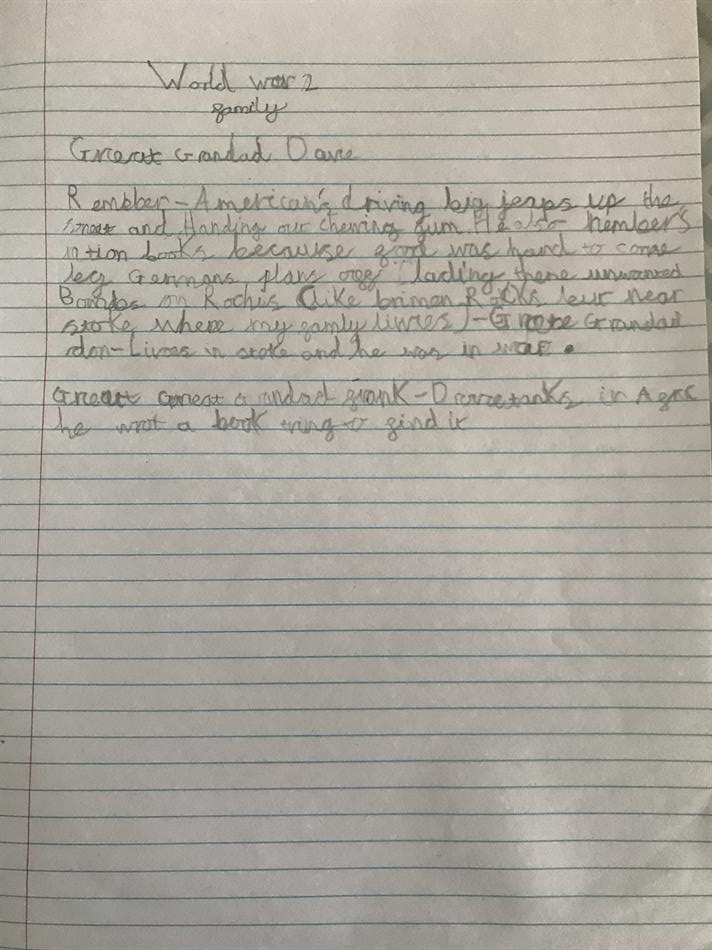 World war 2
family
Great Grandad Dave
Rembber - American's driving big jeaps up the
street and Handing out chewing gum. He also Rembers
ration books because food was hard to come
Germans plans off lading there unwanted
Bombs on Rochis (like briman Rocks leur near
stoke where my family livies) - Greate Grandad
don - Lives in stoke and he was in war.
Great Great Grandad frank - Drove tanks in
he wrot a book tring to find it